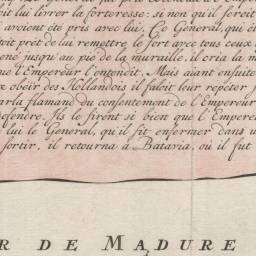 oit lui livrer la forteresse: si non qu'il seroit
avoient été pris avec lui. Ce Général, qui ét
toit prêt de remettre le fort avec tous ceux
ené jusqu'au pié de la muraille, il cria la m
ue l'Empereur l'entendit. Mais aiant ensuite
x obeïr des Hollandois il faloit leur repeter
arla flamand du consentement de l'Empereur
defendre. Ils le firent si bien que l'Empere
lui le Général, qu'il fit enfermer dans u
sortir, il retourna à Batavia, où il fut
R DE MADURE